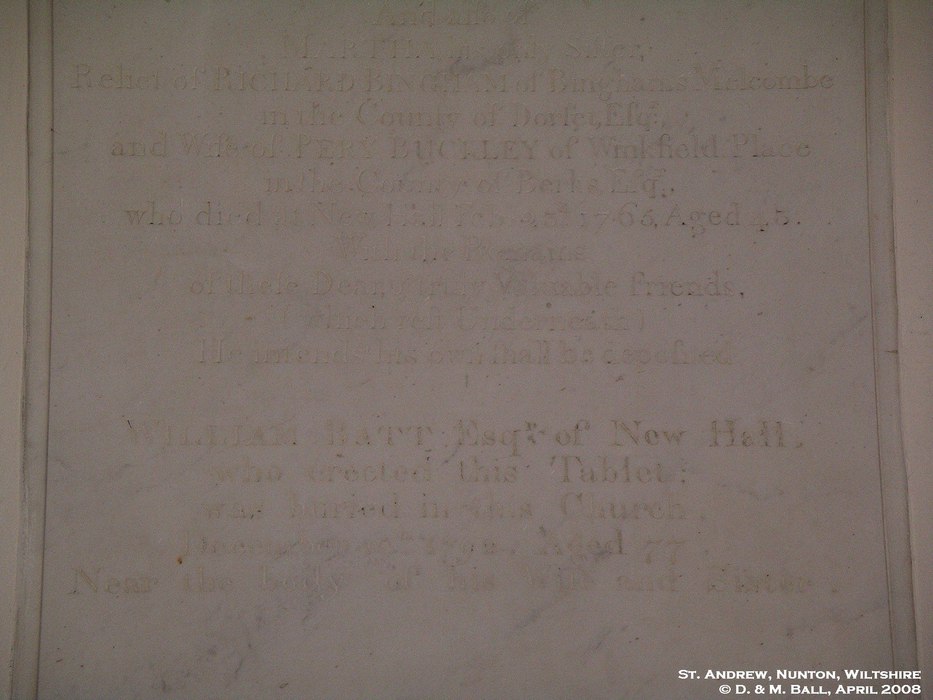 And also of
MARTHA his Sister,
Relict of RICHARD BINGHAM of Binghams Melcombe
in the County of Dorset, Esqr.,
and Wife of PERY BUCKLEY of Winkfield Place
in the County of Berks Esqr.,
who died at New Hall 1765, Aged
With the Remains
of these Dear, & truly Valuable Friends,
(which rest Underneath)
He intends his own shall be deposited
WILLIAM BATT Esqr. of New Hall,
who erected this Tablet;
was buried in this Church,
Aged 77
Near the body of his Wife and Sister.
St. Andrew, Nunton, Wiltshire
© D. & M. Ball, April 2008